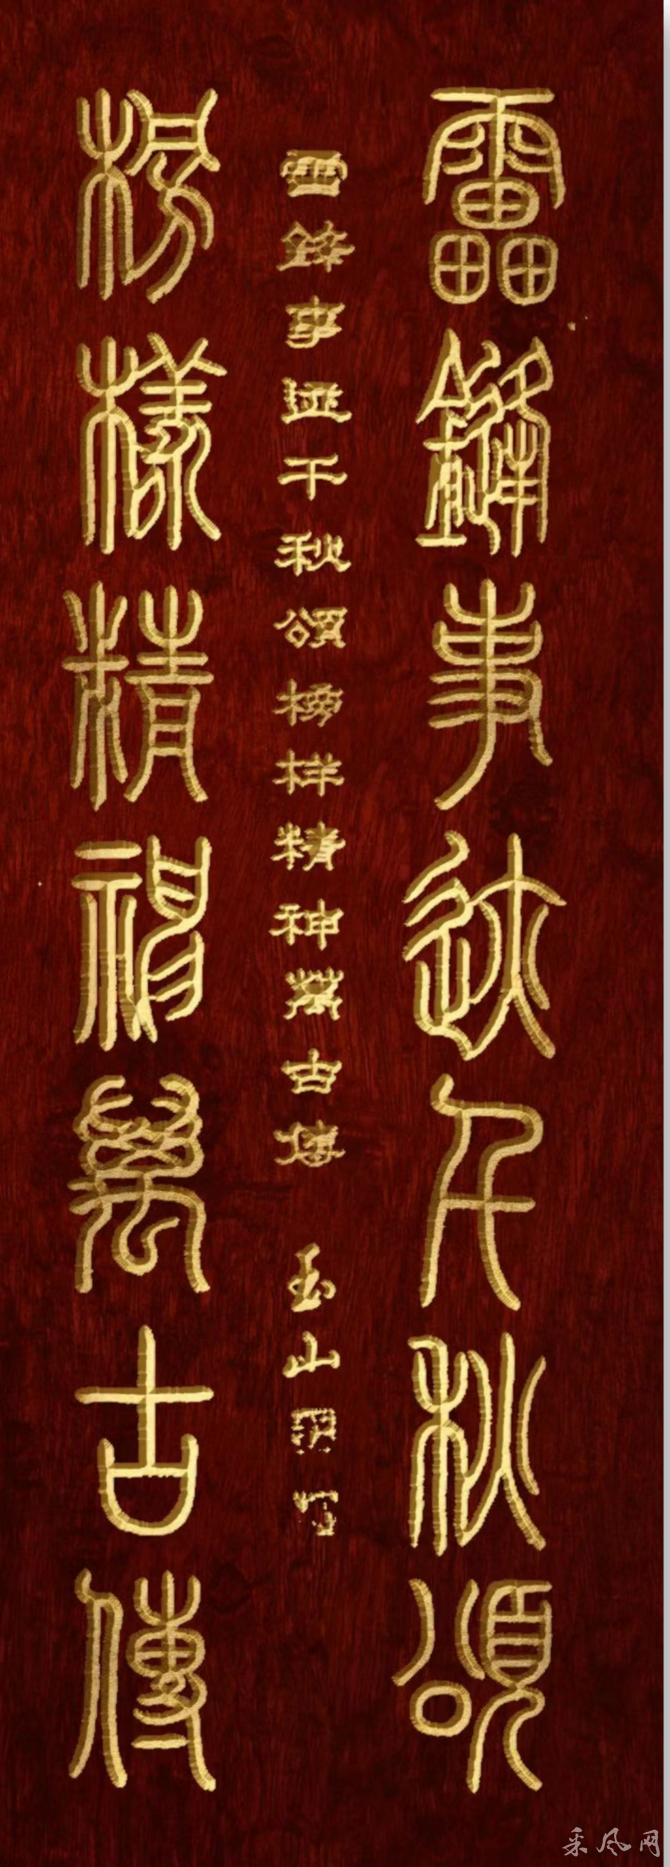 靁鏠事迹千秋頌
雷鋒事迹千秋頌榜样精神萬古傳 玉山
榜樣精神萬古傳
采风网